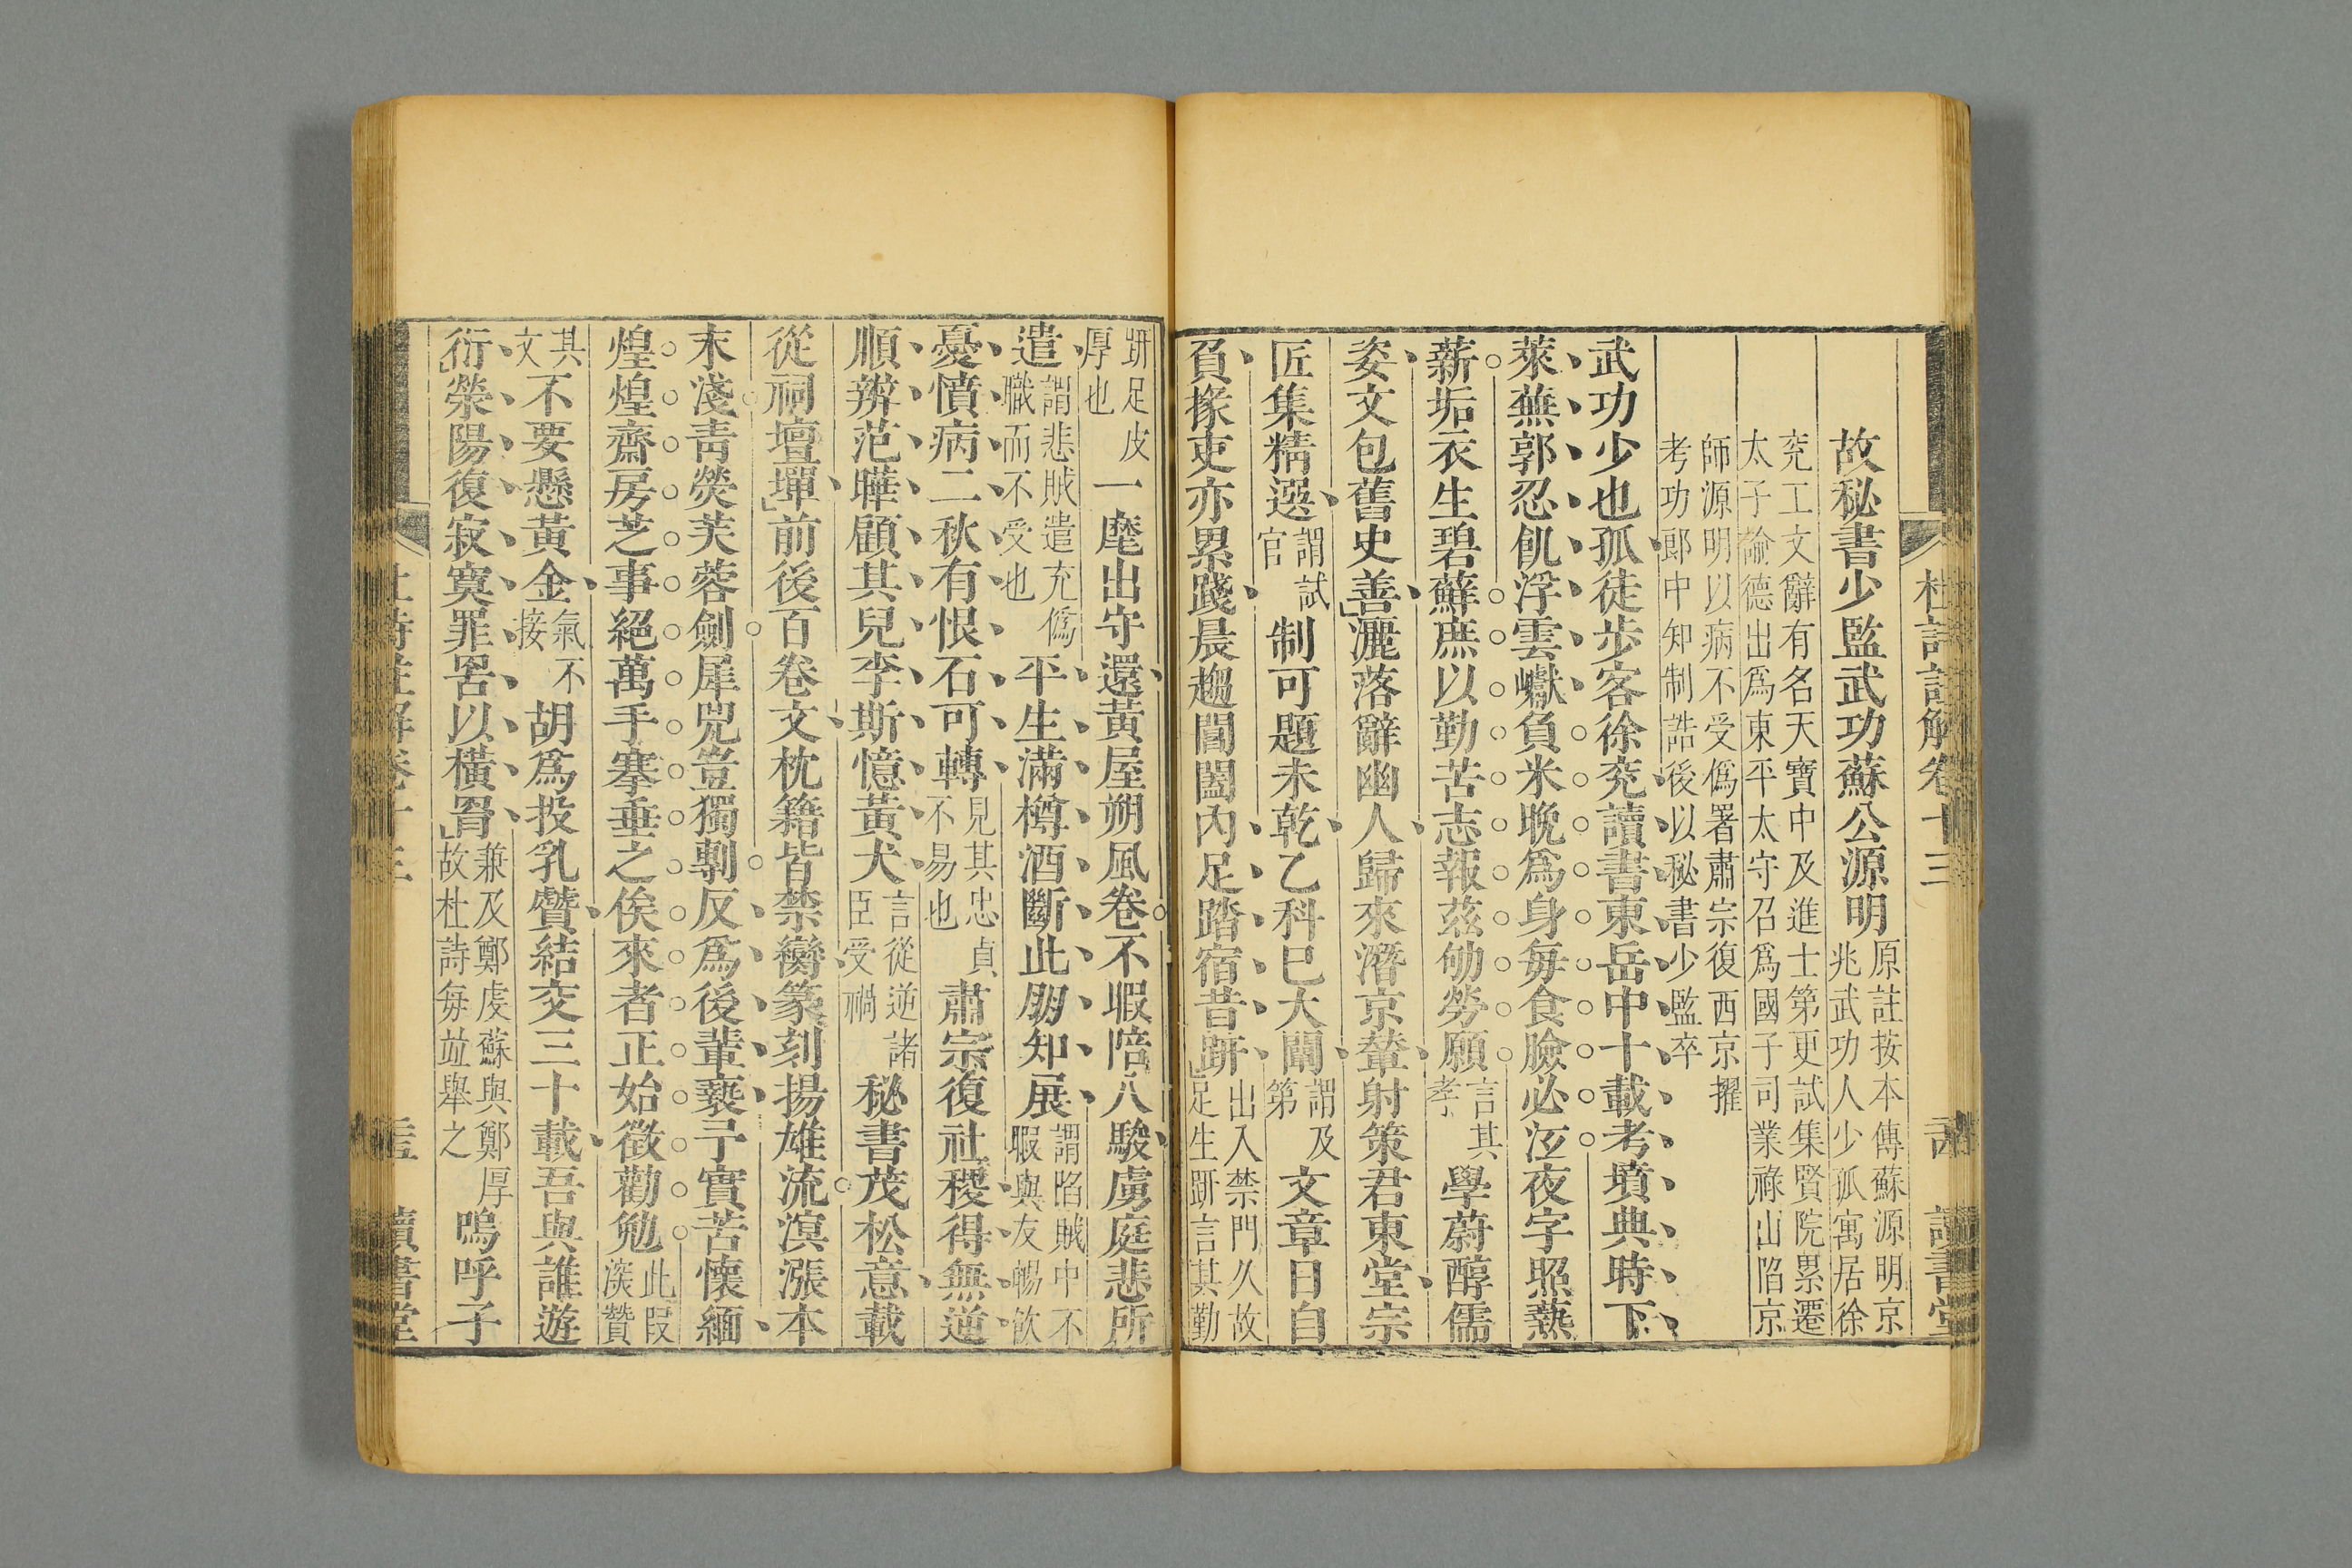 杜詩註解卷十三
讀書堂
故秘書少監武功蘇公源明 原註按本傳蘇源明京兆武功人少孤寓居徐
兖工文辭有名天寶中及進士第更試集賢院累遷太子諭德出爲東平太守召爲國子司業祿山陷京
師源明以病不受僞署肅宗復西京擢考功郎中知制誥後以秘書少監卒
武功少也孤徒步客徐兖讀書東岳中十載考墳典時下
萊蕪郭忍飢浮雲巘負米晚爲身每食臉必泫夜字照爇
薪垢衣生碧蘚庶以勤苦志報茲劬勞願 言其孝 學蔚醇儒
姿文包舊史善灑落辭幽人歸來潛京輦射策君東堂宗
匠集精選 謂試官 制可題未乾乙科已大闡 謂及第 文章日自
負掾吏亦累踐晨趨閶闔內足踏宿昔趼 出入禁門久故足生趼言其勤
趼足皮厚也 一麾出守還黃屋朔風卷不暇陪八駿虜庭悲所
遣 謂悲賊遣充僞職而不受也 平生滿樽酒斷此朋知展 謂陷賊中不暇與友暢飲
憂憤病二秋有恨石可轉 見其忠貞不易也 肅宗復社稷得無逆
順辨范曄顧其兒李斯憶黃犬 言從逆諸臣受禍 秘書茂松意載
從祠壇墠前後百卷文枕籍皆禁臠篆刻揚雄流溟漲本
末淺青熒芙蓉劍犀兕豈獨剸反爲後輩褻予實苦懷緬
煌煌齋房芝事絕萬手搴垂之俟來者正始徵勸勉 此叚深贊
其文 不要懸黃金 氣不接 胡爲投乳贙結交三十載吾與誰遊
衍滎陽復寂寞罪罟以橫罥 兼及鄭虔蘇與鄭厚故杜詩每竝舉之 嗚呼子
讀書堂